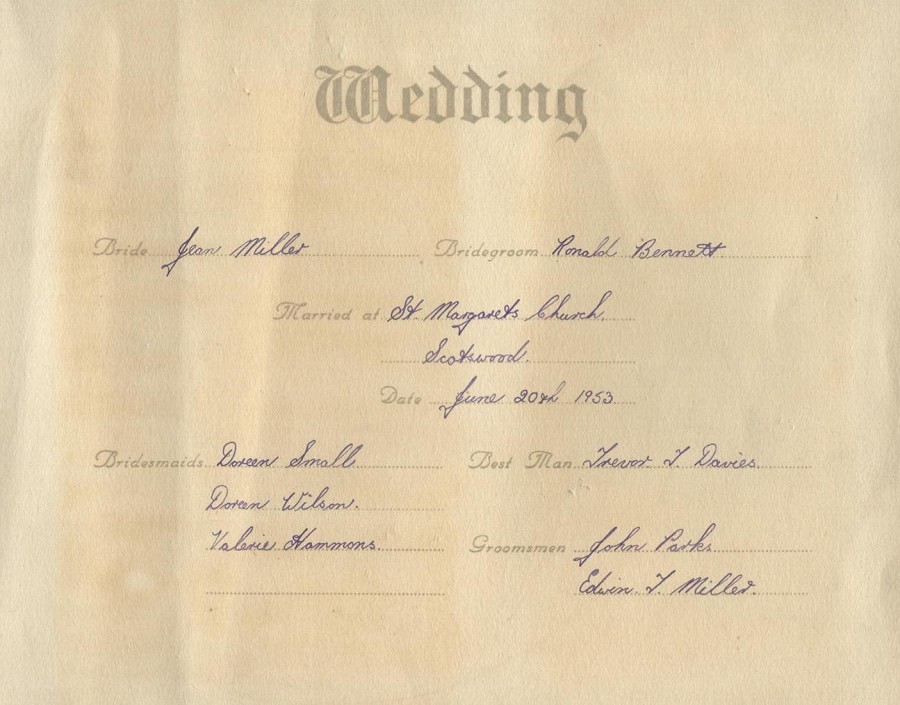 Wedding
Bride Jean Miller Bridegroom Ronald Bennett
Married at St. Margarets Church.
Scotswood.
Date June 20th 1953
Bridesmaids Doreen Small Best Man Trevor T. Davies.
Doreen Wilson.
Valerie Hammons. Groomsmen John Parks
Edwin. T. Miller.